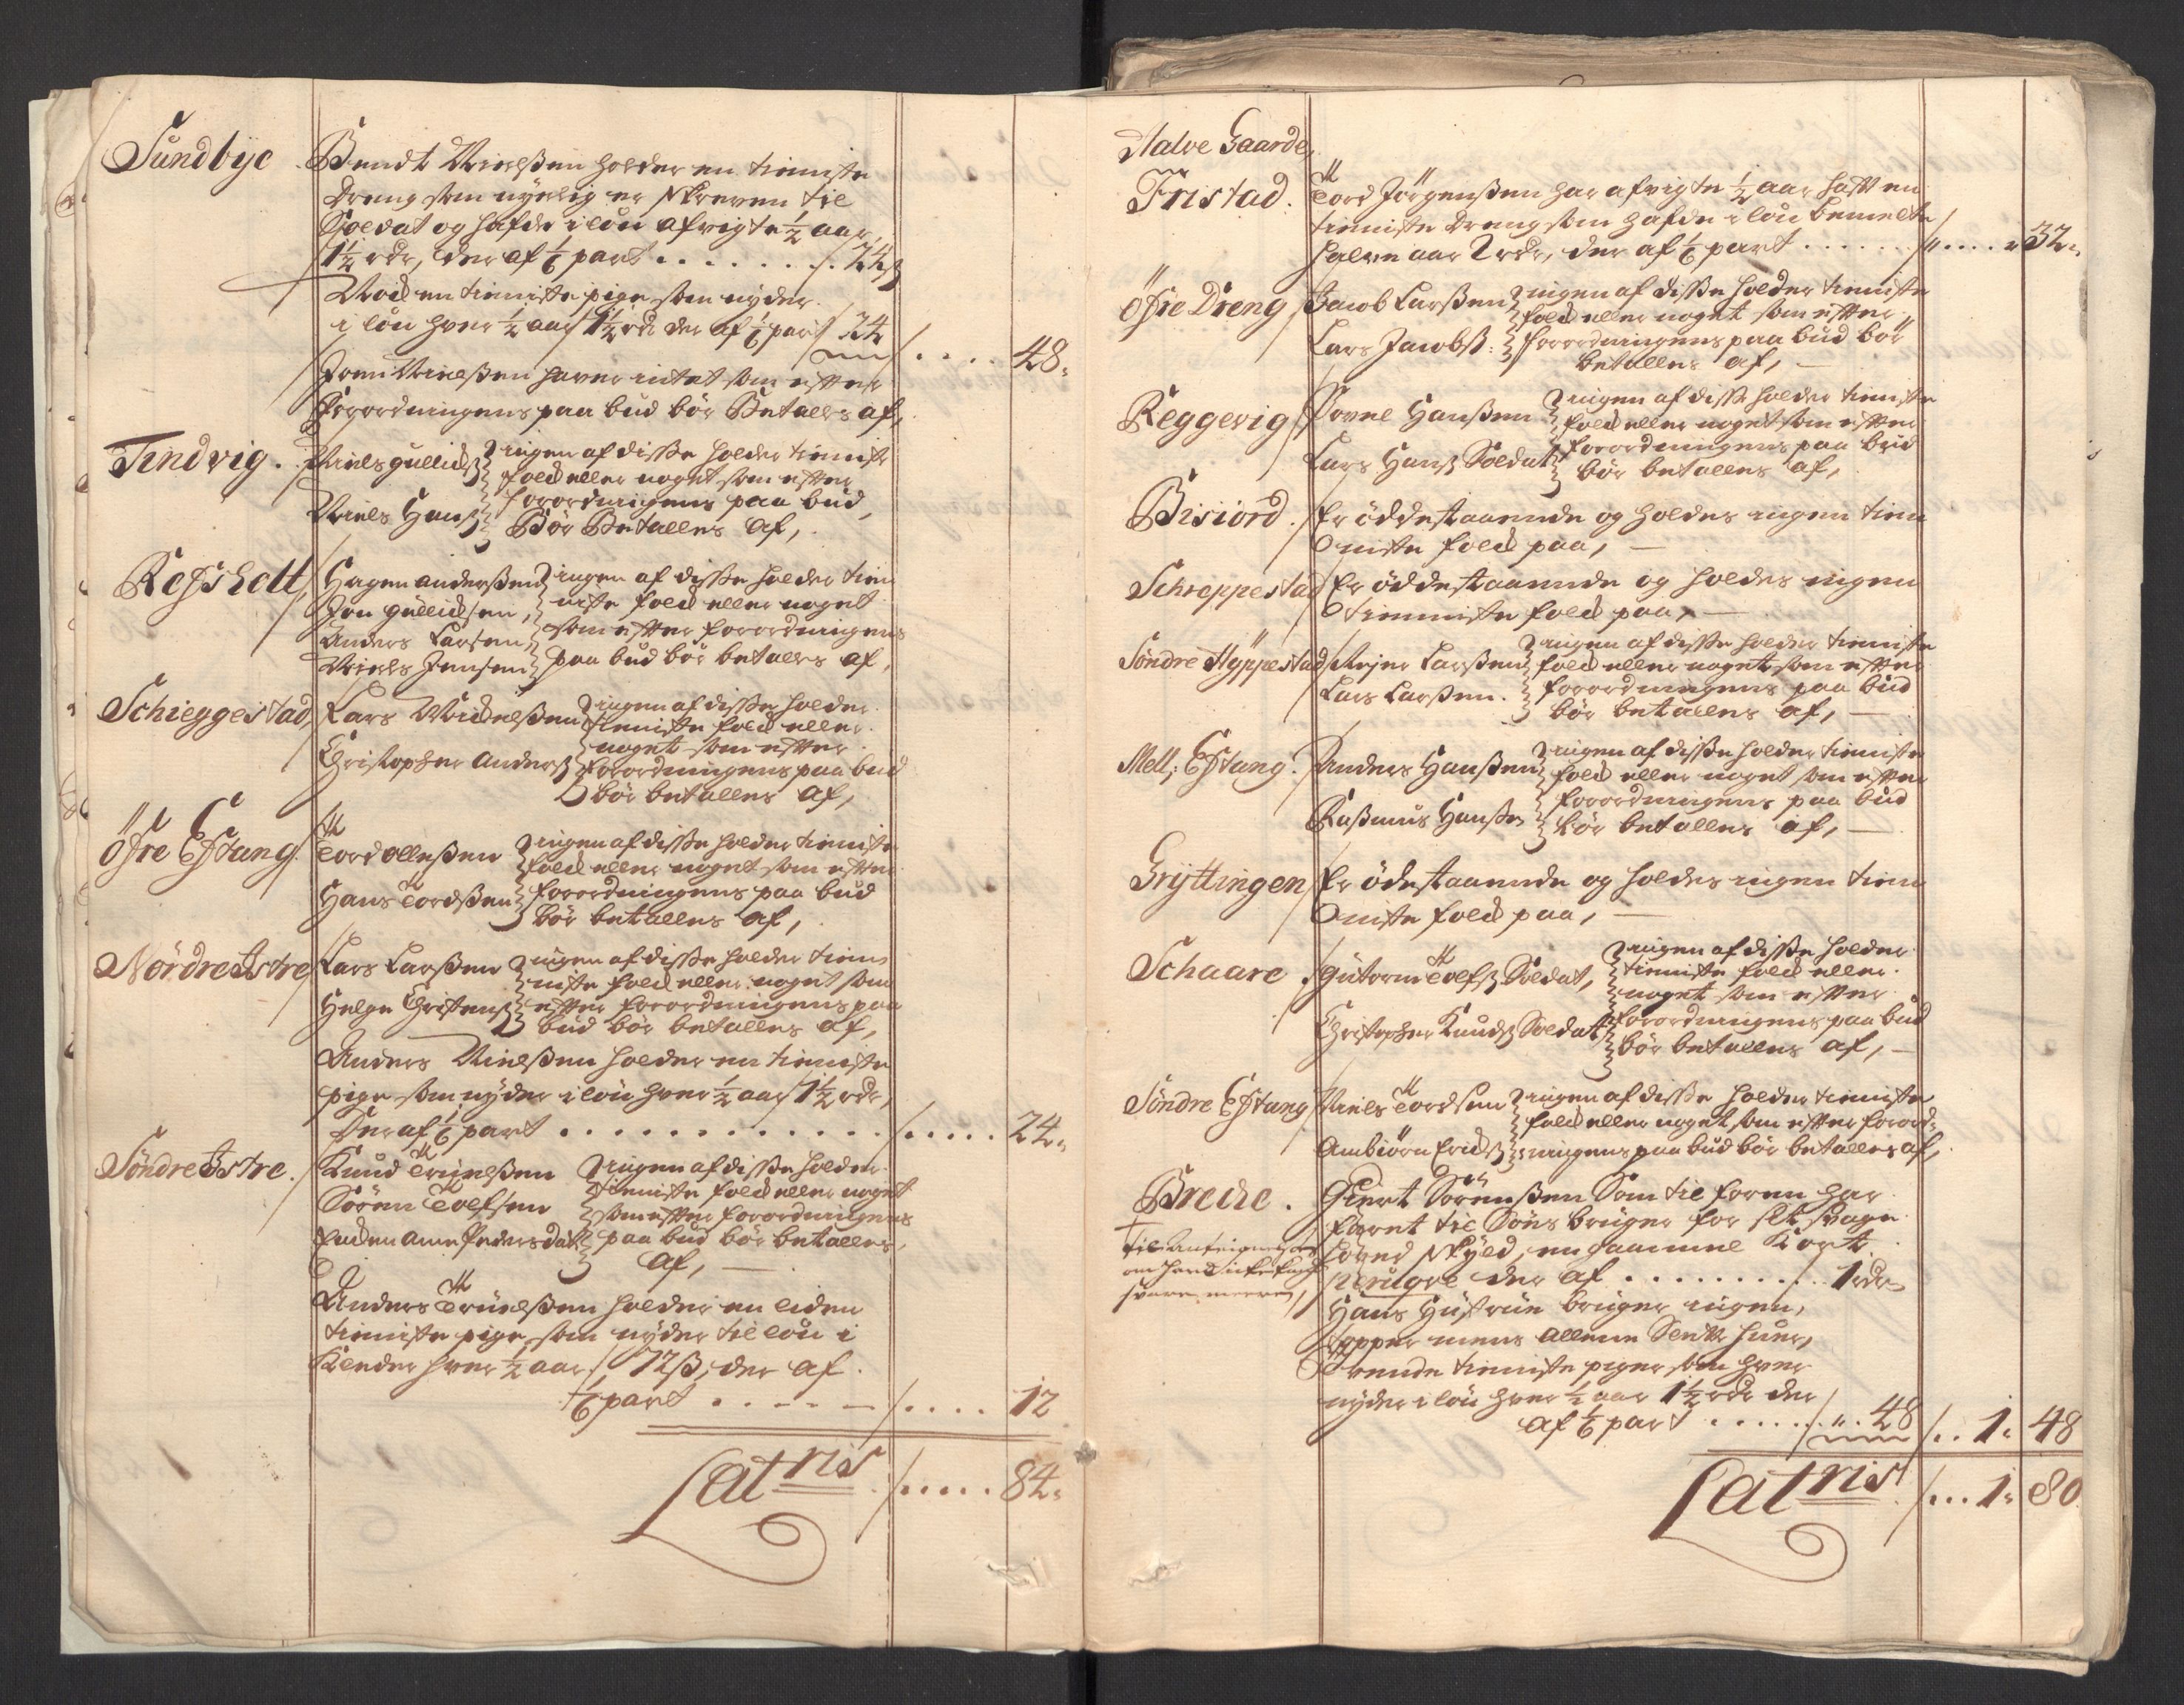 Sundbye
Bendt Nielßen holder en tieniste
dreng som nÿelig er skreven til
Soldat og hafde i lön afvigte ½ aar,
1½ rdr, der af ⅙ part . . . . . . . 24 ß
Nock en tieniste pige som nÿder
i lön hver ½ aar 1½ rdr der af ⅙ part 24
48
Nielßen haver intet som efter
Forordningens paa bud bör Betales af,
Tindvig. Niels gullichß
Niels Hanß
ingen af disse holder tieniste
folck eller noget som efter
forordningens paa bud,
Bör Betalles af,
Refsholt
Hagen anderßen
Jon gullichsen,
Anders Larsen,
Niels Jensen
ingen af disse holder tien
niste folck eller noget
som efter forordningens
paa bud bör betales af,
Schieggestad,
Lars Michelßen
Christopher Anderß
ingen af disse holder
tieniste folck eller
noget som efter
forordningens paa bud
bör betalles af,
Öfre Efstang.
Tord olleßen
Hans Tordßen
ingen af disse holder tieniste
folck eller noget som efter
forordningens paa bud
bör betalles af,
Nördre Istre
Lars Larßen
Helge Christenß
ingen af disse holder tien
niste folck eller noget som
efter forordningens paa
bud bör betalles af,
Anders Nielßen holder en tieniste
pige som nÿder i lön hver ½ aar 1½ rdr,
Der af ⅙ part . . . . . . . . . . . 24
Söndre Istre.
Knud Truelßen
Sören Tolfsen
Encken Anne Pedersdatt
ingen af disse holder
tieniste folck eller noget
som efter forordningens
paa bud bör betalles
af,
Anders Truelßen holder en liden
tieniste pige, som nÿder til lön i
Klæder hver ½ aar 72 ß, der af
⅙ part . . . . . 12
Latris . . . . . 84
Halve Gaarde,
Fristad.
Tord Jörgenßen har afvigte ½ aar haft en
tieniste dreng som hafde i lön bemelte
halve aar 2 rdr, der af ⅙ part . . . . . . . 32
Öfre Dreng
Jacob Larßen
Lars Jacobß:
ingen af disse holder tieniste
folck eller noget som efter
forordningens paa bud bör
betalles af,
Reggevig
Povel Hanßen
Lars Hanß Soldat
ingen af disse holder tieniste
folck eller noget som efter
forordningens paa bud
bör betalles af,
Bisiord.
Er öddestaaende og holdes ingen tien
niste folck paa,
Schreppestad
Er öddestaaende og holdes ingen
tienniste folck paa,
Söndre Hÿppestad
Larßen
Lars Larßen.
ingen af disse holder tieniste
folck eller noget som efter
forordningens paa bud
bör betalles af,
Mell: Efstang.
Anders Hanßen
Raßmus Hanßen
ingen af disse holder tieniste
folck eller noget som efter
forordningens paa bud
bör betalles af,
Grÿttingen
Er ödestaaende og holdes ingen tien
niste folck paa,
Schaare.
gutorm Tolfß Soldat,
Christopher Knudß Soldat
ingen af disse holder
tieniste folck eller
noget som efter
forordningens paa bud
bör betalles af,
Söndre Efstang
Niels Tordsen
Ambiörn Erichß
ingen af disse holder tieniste
folck eller noget som efter forord:
ningens paa bud bör betalles af,
Brecke.
Giert Sörenßen Som til foren har
faret til Söes bruger for slet svage
hoved skÿld, en gammel Kort
peruqve der af . . . . . . . . . . 1 rdr
Hans Hustrue bruger ingen
topper mens allene Slette huer,
tvende tieniste piger som hver
nÿder i lön hver ½ aar 1½ rdr der
af ⅙ part . . . . . . 48 . . 1 48
Latris . . . 1 80